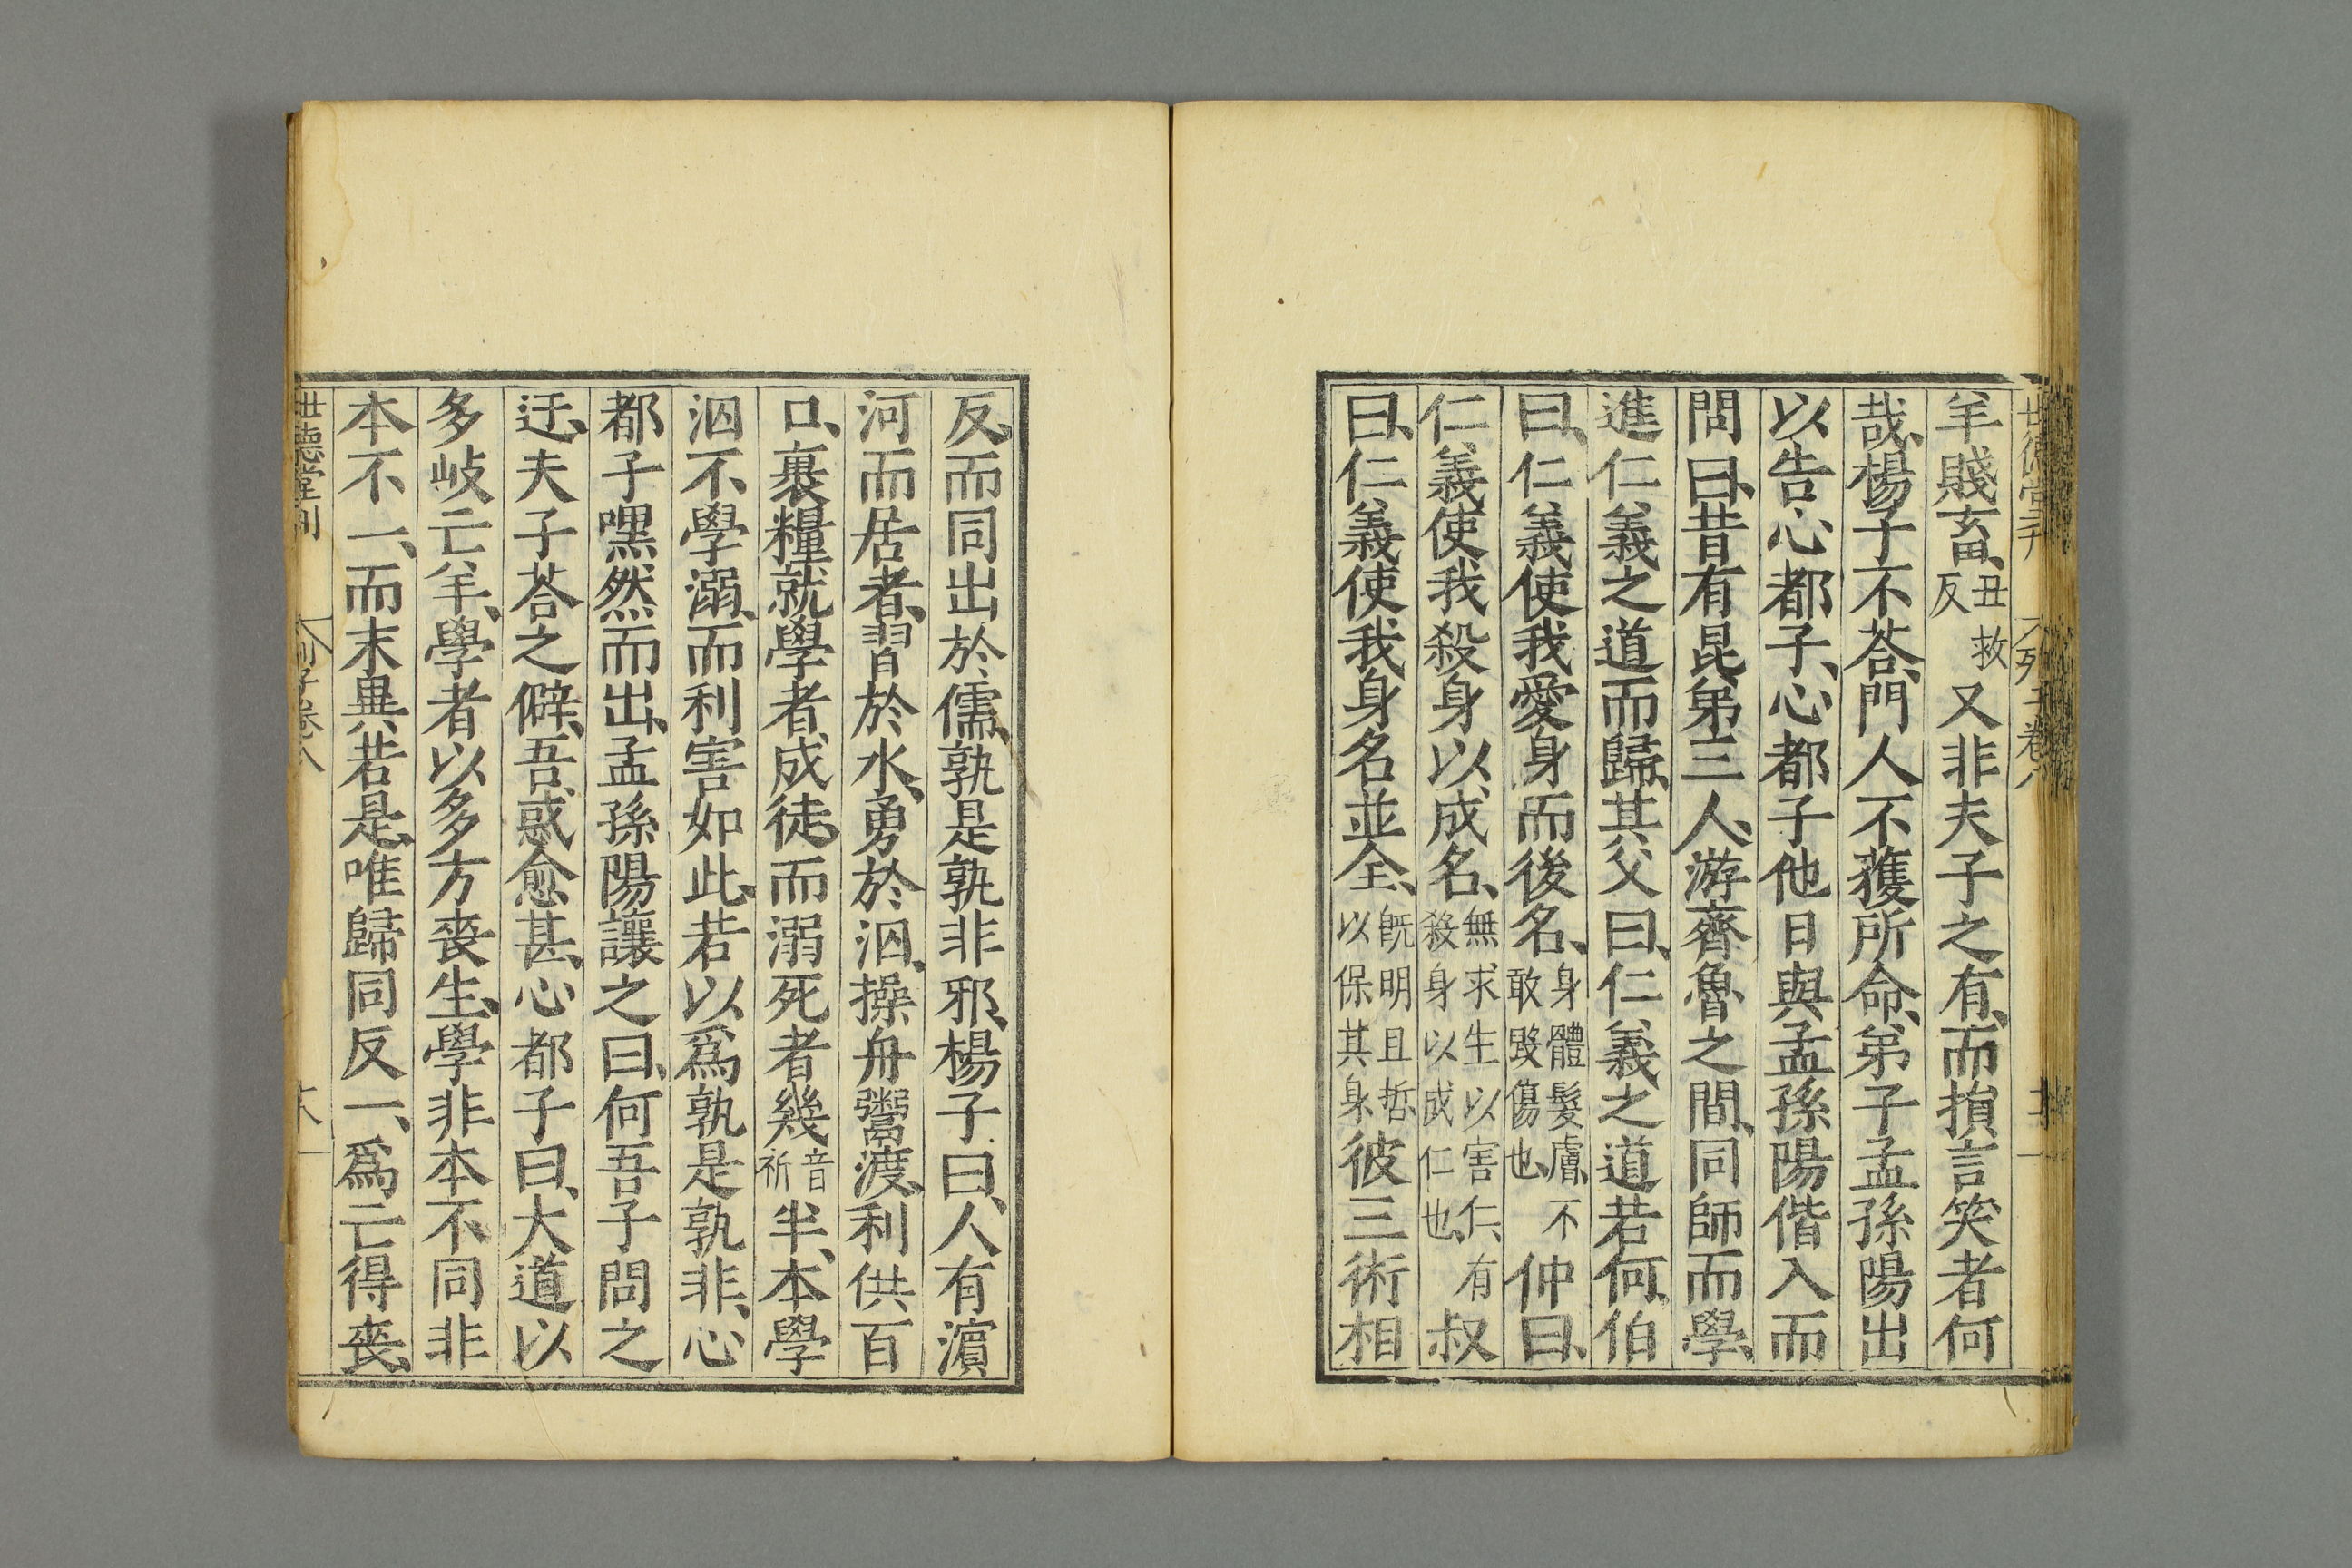 羊賤畜、丑救反又非夫子之有、而損言笑者何
哉、楊子不荅、門人不獲所命、弟子孟孫陽出
以告心都子、心都子他日與孟孫陽偕入而
問曰、昔有昆弟三人、游齊魯之間、同師而學、
進仁義之道而歸、其父曰、仁義之道若何、伯
曰、仁義使我愛身而後名、身體髮膚、不敢毀傷也、仲曰、
仁義使我殺身以成名、無求生以害仁、有殺身以成仁也、叔
曰、仁義使我身名並全、旣明且哲、以保其身、彼三術相
反、而同出於儒、孰是孰非邪、楊子曰、人有濵
河而居者、習於水、勇於泅、操舟鬻渡、利供百
口、裹糧就學者、成徒、而溺死者幾音祈半、本學
泅不學溺、而利害如此、若以爲孰是孰非、心
都子嘿然而出、孟孫陽讓之曰、何吾子問之
迂、夫子荅之僻、吾惑愈甚、心都子曰、大道以
多岐亡羊、學者以多方喪生、學非本不同、非
本不一、而末異若是、唯歸同反一、爲亡得喪、
世德堂刊 列子卷八